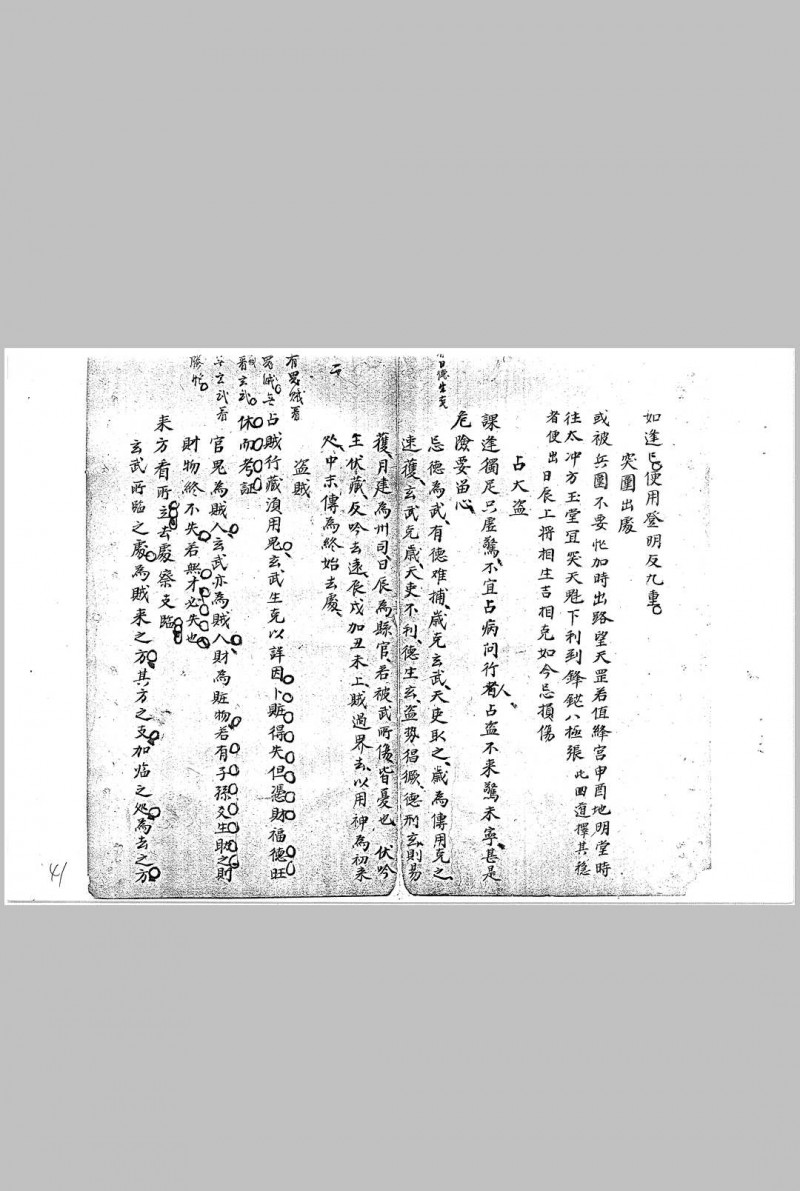 如逢使用登明反九重
突圍出處
或被兵圍不要忙加時出路望天罡若值絳宮申酉地明堂時
往太冲方玉堂宜笑天魁下利到鋒鋩八極張 此四道擇其穩
者便出 日辰上將相生吉相克如今忌損傷
占大盜
課逢獨足只虛驚不宜占病問行人者占盜不來驚未寧甚是
危險要留心
忌德為武有德难捕歲克玄武天吏取之歲為傳用克之
速獲玄武克歲天吏不利德生玄盜势猖獗德刑玄則易
獲月建為州司日辰為縣官若被武所傷皆憂也 伏吟
主伏藏反吟去遠辰戌加丑未上賊過界去以用神為初来
处中末傳為終始去處
盜賊
占賊行藏須用鬼玄武生克以詳因卜賍得失但憑財福德旺
休而考証
官鬼為賊人玄武亦為賊人財為賍物若有子孫爻生助之則
財物終不失若無才必失也
来方看所立去處察支臨
玄武所臨之處為賊来之方其方之支加临之处為去之方
日德生克
有男賊看
玄武看
41